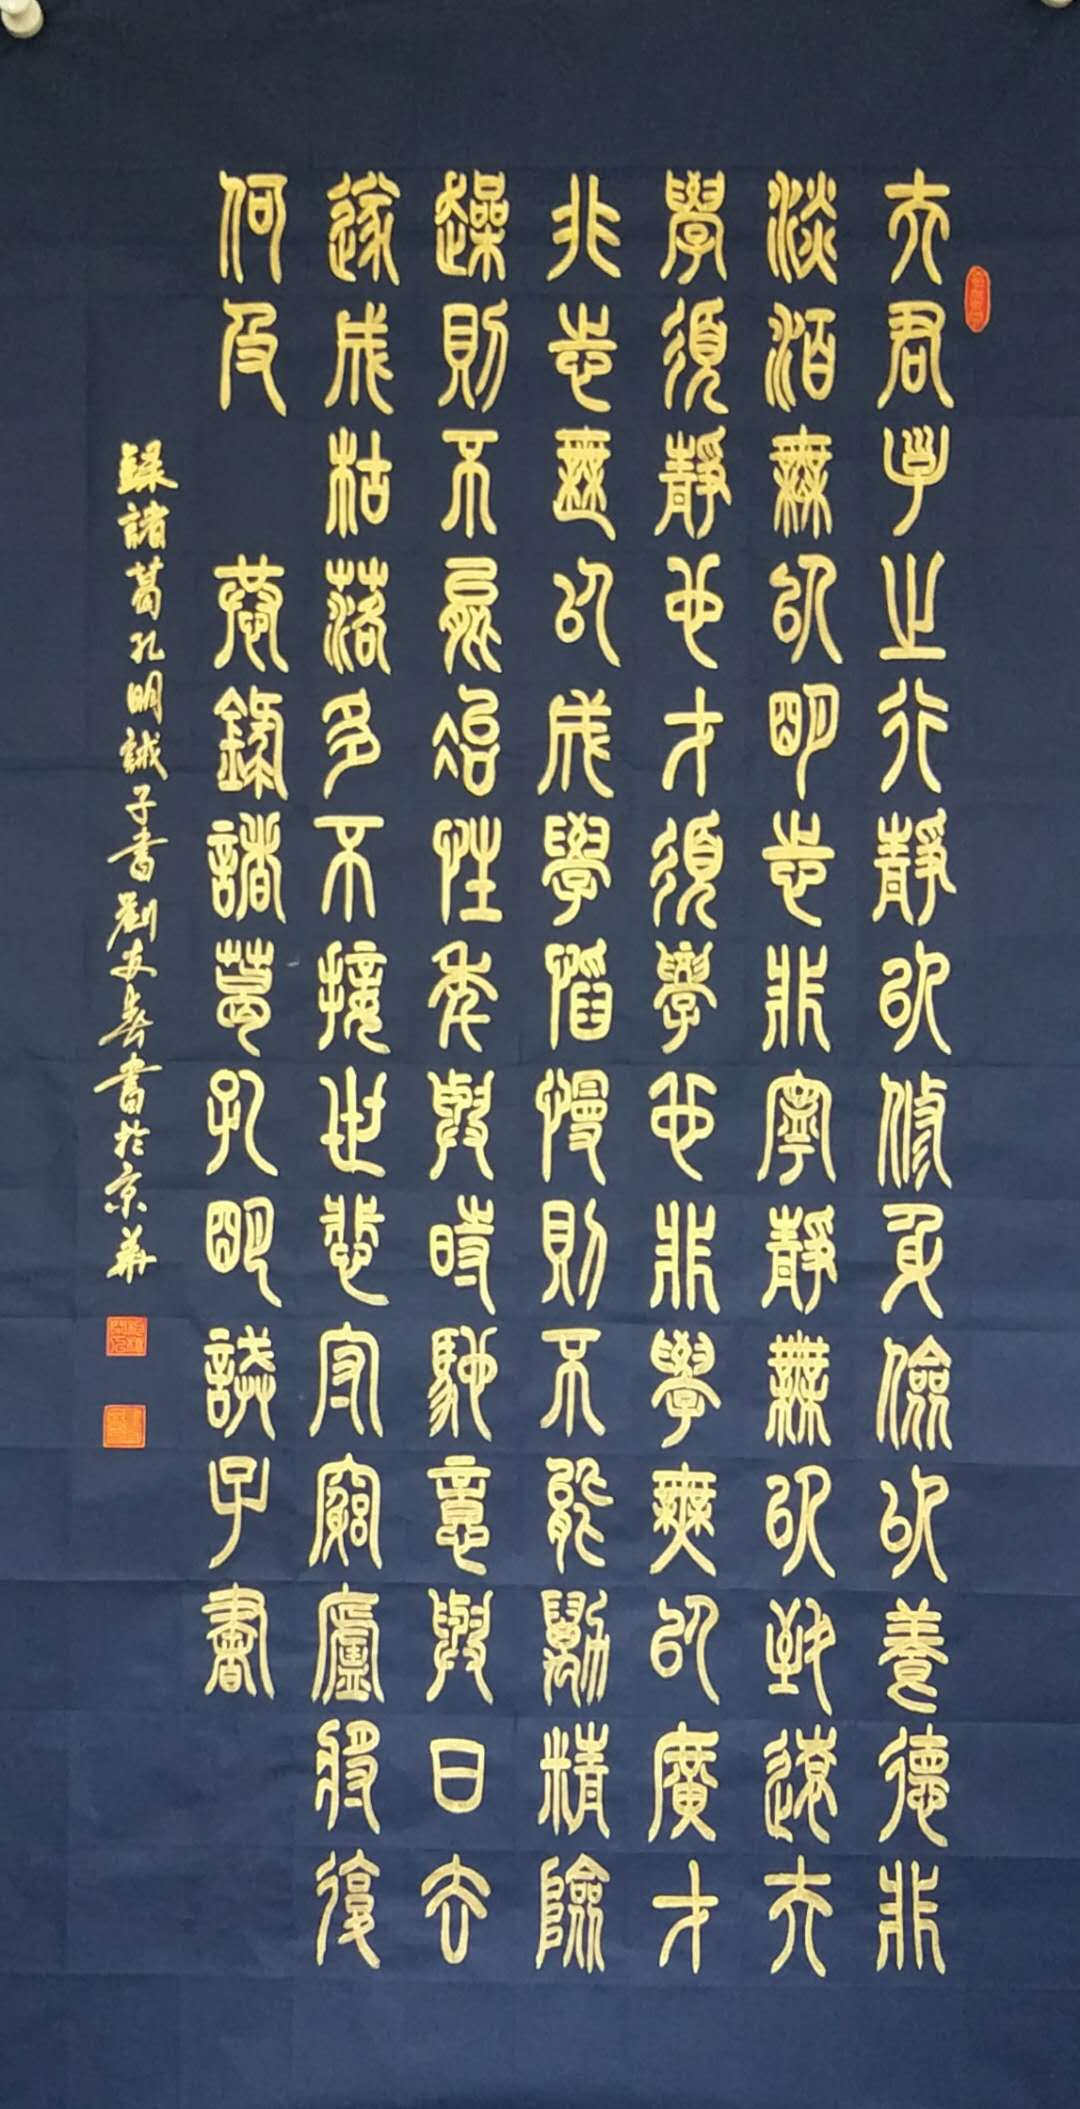 夫君子之行靜以修身儉以養德非
淡泊無以明志非寧靜無以致遠夫
學須靜也才須學也非學無以廣才
非志無以成學慆慢則不能勵精險
躁則不能冶性年與時馳意與日去
遂成枯落多不接世悲守窮廬將復
何及 恭錄諸葛孔明誡子書
錄諸葛孔明誡子書劉友春書於京華